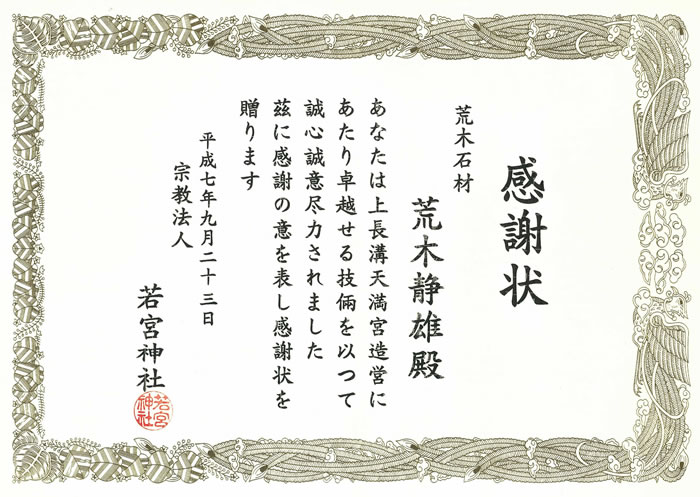 感謝状
荒木石材
荒木静雄殿
あなたは上長溝天満宮造営に
あたり卓越せる技倆を以つて
誠心誠意尽力されました
茲に感謝の意を表し感謝状を
贈ります
平成七年九月二十三日
宗教法人
若宮神社
若宮
神社